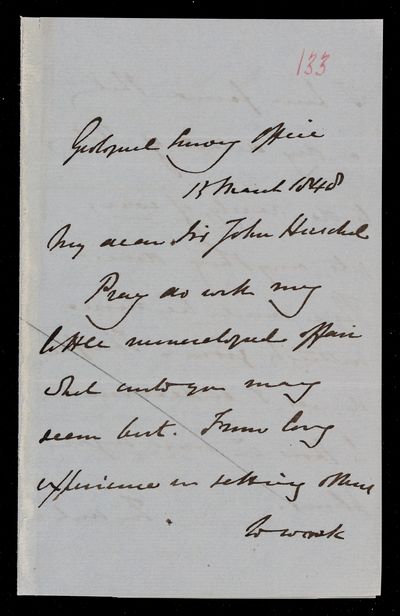 133
Geological Survey Office
13 March 1848
My dear Sir John Herschel
Pray do with my
little mineralogical affair
what unto you may
seem best. From long
experience in setting others
to work